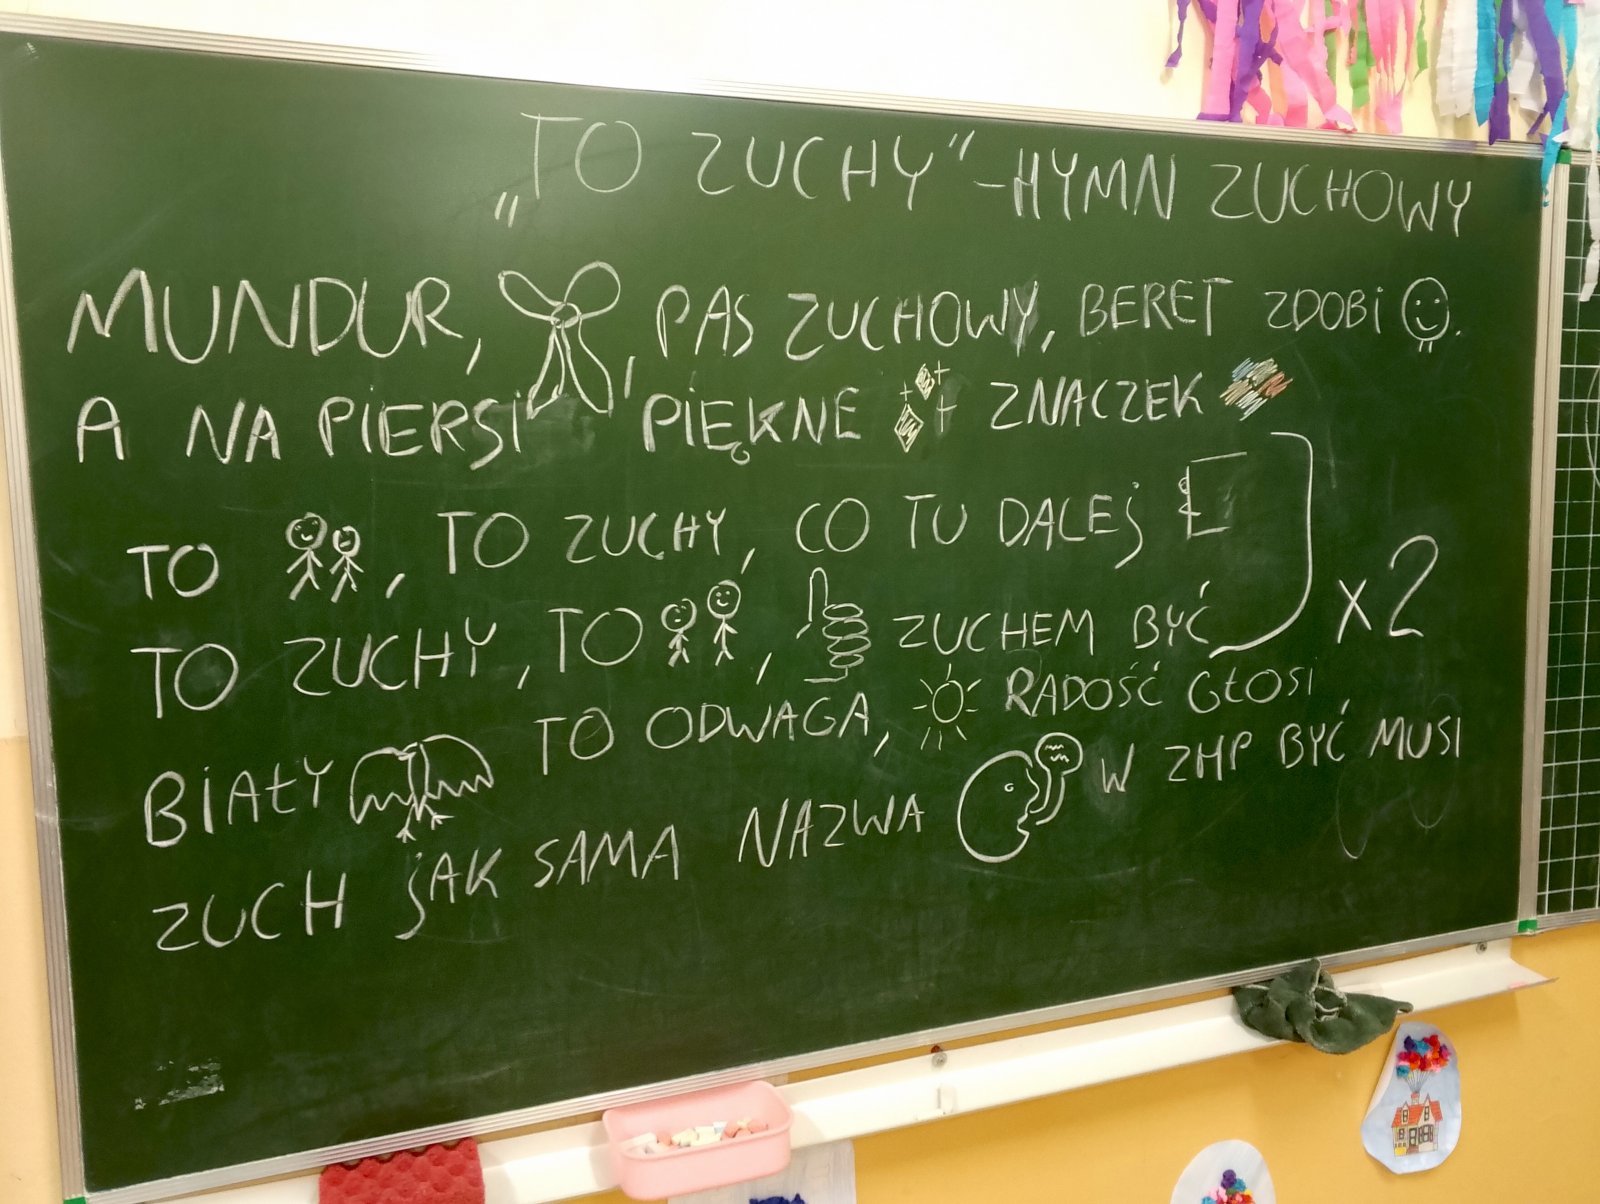 „TO ZUCHY" - HYMN ZUCHOWY
MUNDUR, , PAS ZUCHOWY, BERET ZDOBI .
A NA PIERSI PIĘKNE ZNACZEK
TO , TO ZUCHY, CO TU DALEJ
TO ZUCHY, TO , ZUCHEM BYĆ x2
BIAŁY TO ODWAGA, RADOŚĆ GŁOSI
ZUCH JAK SAMA NAZWA W ZHP BYĆ MUSI